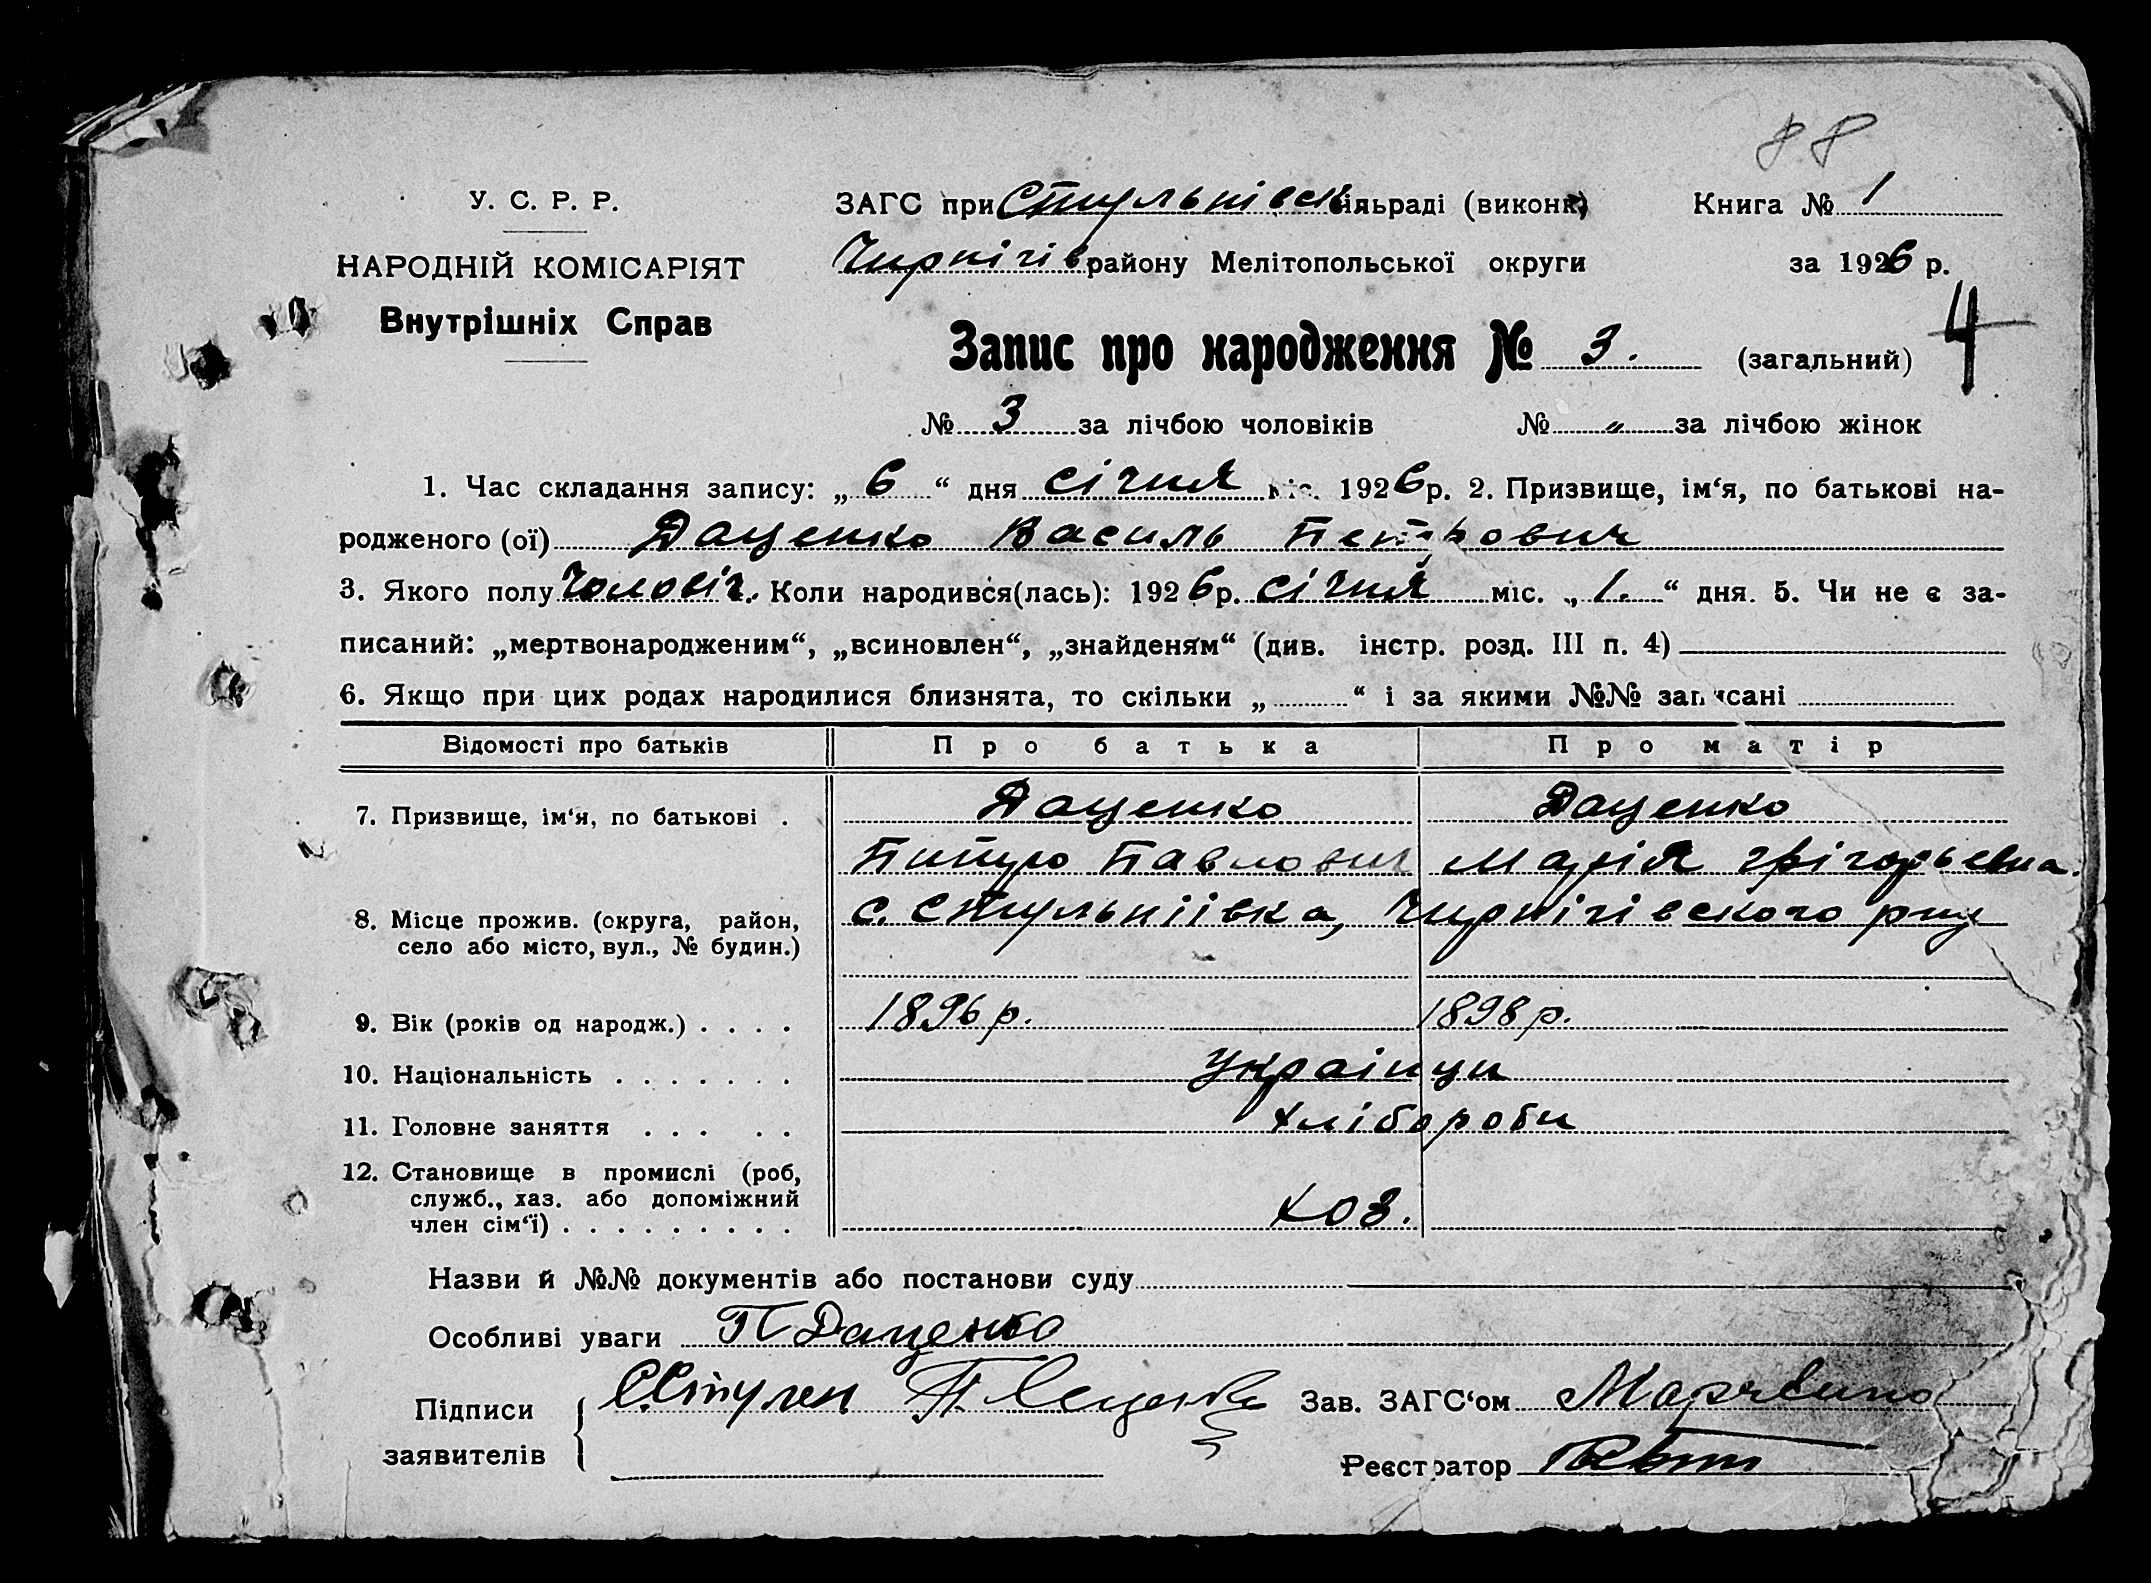 88
У. С. Р. Р.
ЗАГС при Стульнівск. сільраді (виконк)
Книга № 1
НАРОДНІЙ КОМІСАРІЯТ
Чирнігів району Мелітопольської округи
за 1926 р.
Внутрішніх Справ
Запис про народження № 3. (загальний)
4
№ 3 за лічбою чоловіків № „ за лічбою жінок
1. Час складання запису: „6“ дня січня міс. 1926 р. 2. Призвище, ім‘я, по батькові на-
родженого (ої) Даценко Василь Петрович
3. Якого полу Чоловіч. Коли народився(лась): 1926 р. січня міс. „1.“ дня. 5. Чи не є за-
писаний: „мертвонародженим“, „всиновлен“, „знайденям“ (див. інстр. розд. III п. 4)
6. Якщо при цих родах народилися близнята, то скільки „ “ і за якими №№ записані
Відомості про батьків Про батька Про матір
7. Призвище, ім‘я, по батькові . Даценко Даценко
Питро Павлович Марія Грігорьевна.
8. Місце прожив. (округа, район, с. Стульніівка, Чирнігівского р-ну
село або місто, вул., № будин.)
9. Вік (років од народж.) . . . . 1896 р. 1898 р.
10. Національність . . . . . . . Українци
11. Головне заняття . . . . . Хлібороби
12. Становище в промислі (роб,
служб., хаз. або допоміжний
член сім‘ї) . . . . . . . . . хоз.
Назви й №№ документів або постанови суду
Особливі уваги П Даценко
Підписи
Зав. ЗАГС‘ом
заявителів
Реєстратор